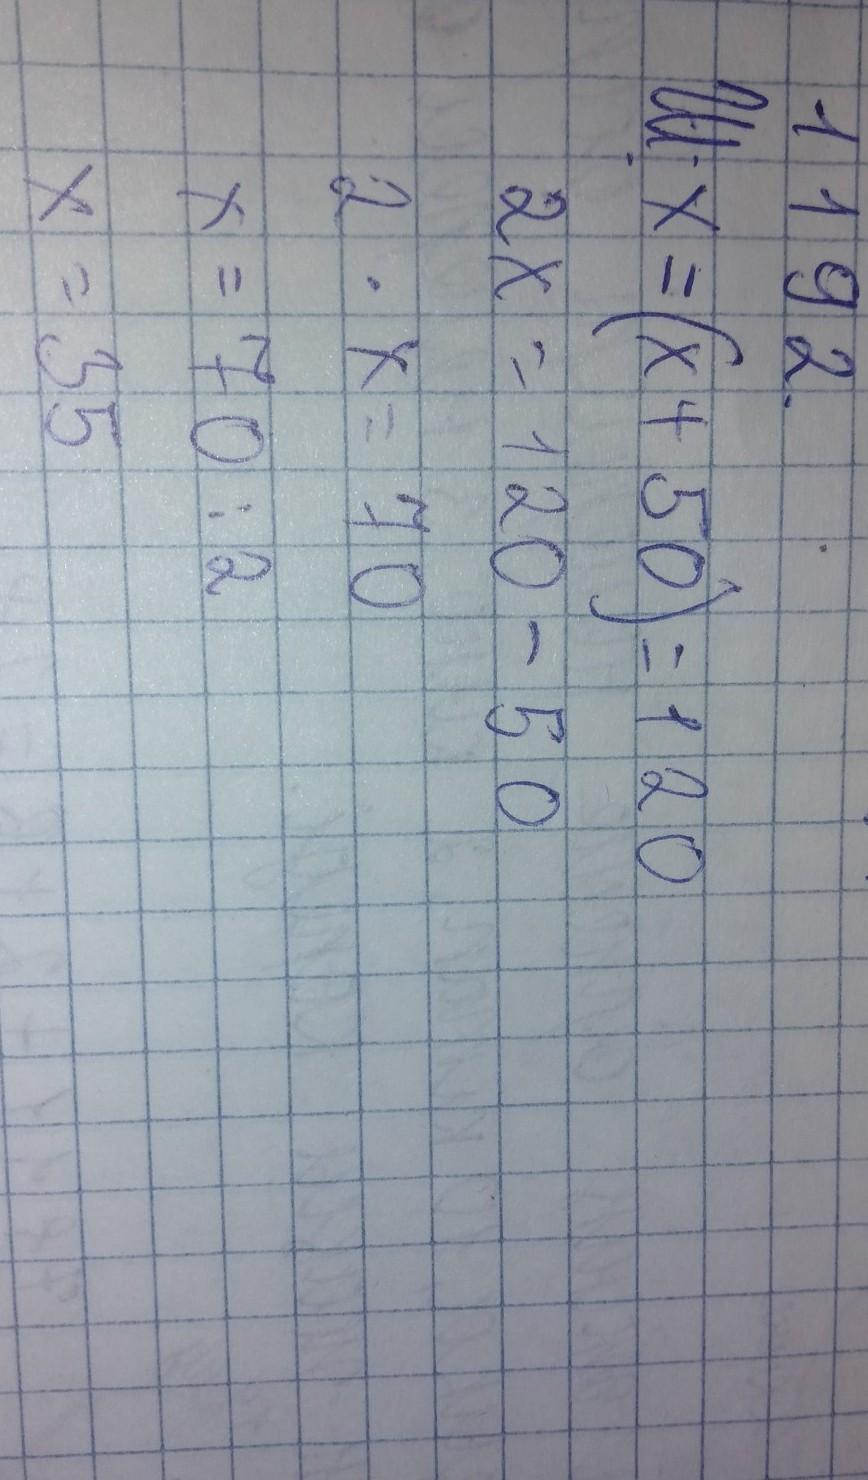 1192.
x = (x + 50) = 120
2x = 120 - 50
2 · x = 70
x = 70 : 2
x = 35